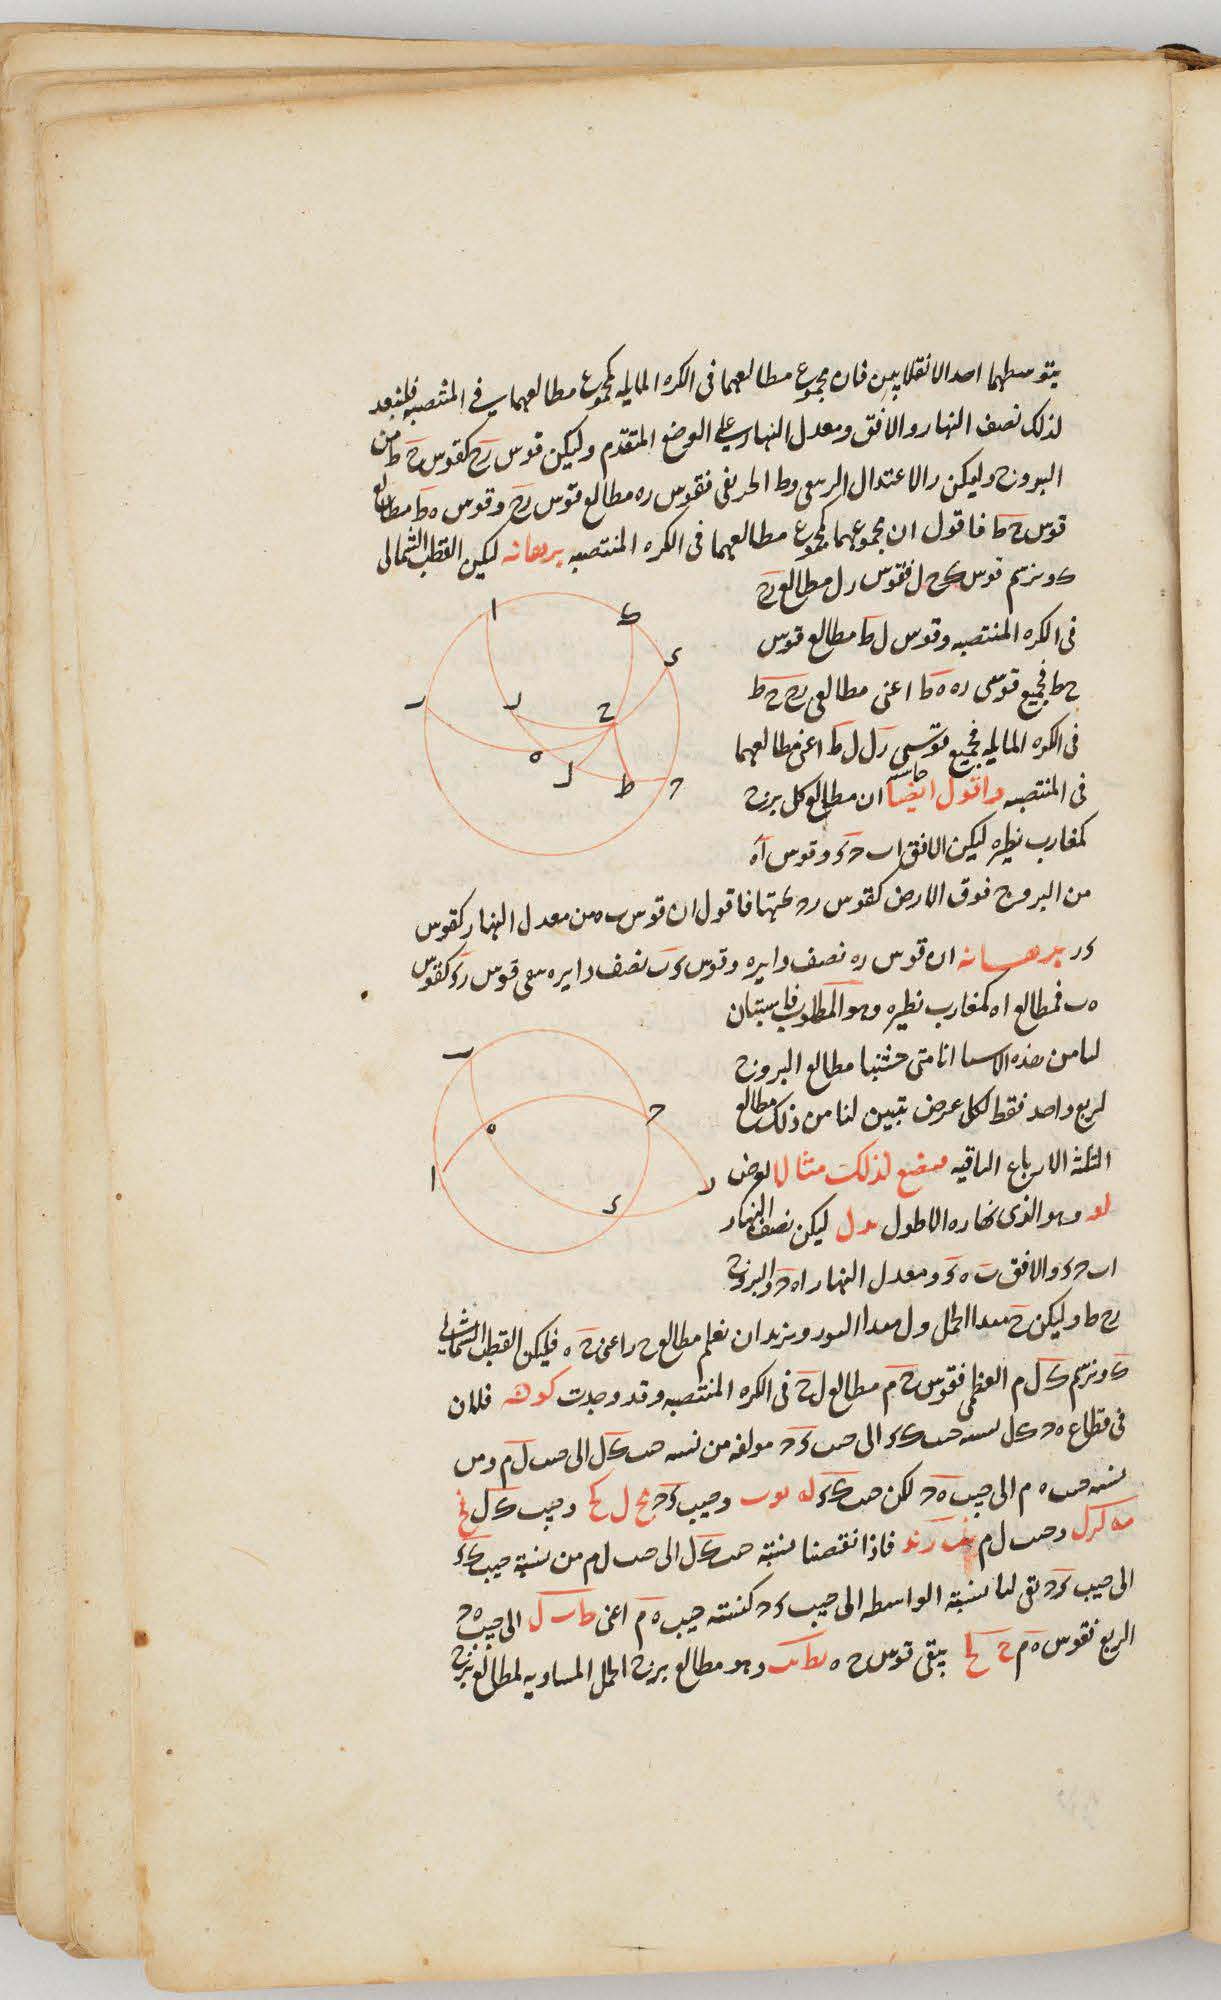 يتوسطهما احد الانقلابين فان مجموع مطالعهما فى الكره المايله كمجموع مطالعهما في المنتصبه فلنعد
لذلك نصف النهار والافق ومعدل النهار على الوضع المتقدم وليكن قوس رح كقوس ح ط من
البروج وليكن ر الاعتدال الربيعى وط الخريفى فقوس ره مطالع قوس رح وقوس ه ط مطالع
قوس ح ط فاقول ان مجموعهما كمجموع مطالعهما فى الكره المنتصبه برهانه ليكن القطب الشمالى
ك ونرسم قوس ك ح ل فقوس ر ل مطالع رح
فى الكره المنتصبه وقوس ل ط مطالع قوس
ح ط فجميع قوسى ره ه ط اعنى مطالعى رح ح ط
فى الكره المايله فجميع قوسى ر ل ل ط اعنى مطالعهما
فى المنتصبه واقول ايضا ان مطالع كل برج
كمغارب نظيره ليكن الافق ا ب ح د وقوس ا ه
من البروج فوق الارض كقوس ر ح تحتها فاقول ان قوس ب ه من معدل النهار كقوس
د ر برهانه ان قوس ره نصف دايره وقوس د ب نصف دايره يبقى قوس ر د كقوس
ه ب فمطالع ا ه كمغارب نظيره وهو المطلوب فاستبان
لنا من هذه الاشيا انا متى حسبنا مطالع البروج
لربع واحد فقط لكل عرض تبين لنا من ذلك مطالع
الثلثة الارباع الباقيه فنضع لذلك مثالا لعرض
لو وهو الذى نهاره الاطول يد ل ليكن نصف النهار
ا ب ح د والافق ب ه د ومعدل النهار ا ه ح والبروج
رح ط وليكن ح مبدا الحمل ول مبدا الثور ونريد ان نعلم مطالع ح ر اعنى ح ه فليكن القطب الشمالى
ك ونرسم ك ل م العظمى فقوس ح م مطالع ل ح فى الكره المنتصبه وقد وجدت فلان
فى قطاع ه ح ك ل نسبه جيب ك د الى جيب د ح مولفه من نسبه جيب ك ل الى جيب ل م ومن
نسبه جيب ه م الى جيب ه ح لكن جيب ك د وجيب د ح مح ل كح وجيب ك ل
وجيب ل م فاذا نقصنا نسبة جيب ك ل الى جيب ل م من نسبة جيب ك د
الى جيب د ح بقى لنا نسبة الواسطه الى جيب د ح كنسبه جيب ه م اعنى الى جيب ه ح
الربع فقوس ه م ح لح يبقى قوس ح ه وهو مطالع برج الحمل المساويه لمطالع برج
ا
ك
د
ب
ر
ح
ه
ل
ط
ح
ب
ح
ه
ا
ر
د